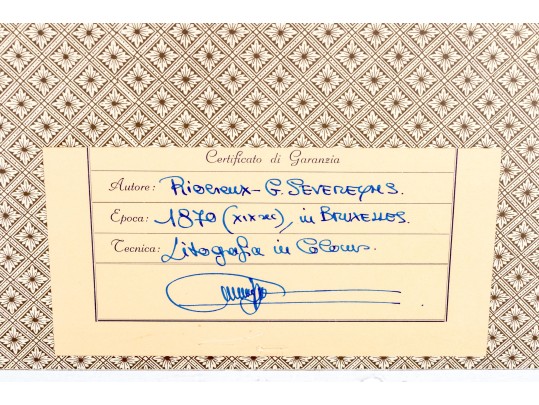 Certificato di Garanzia
Autore: Riocreux - G. SEVEREYNS.
Epoca: 1870 (XIX sec), in BRUXELLES.
Tecnica: Litografia in Colours.